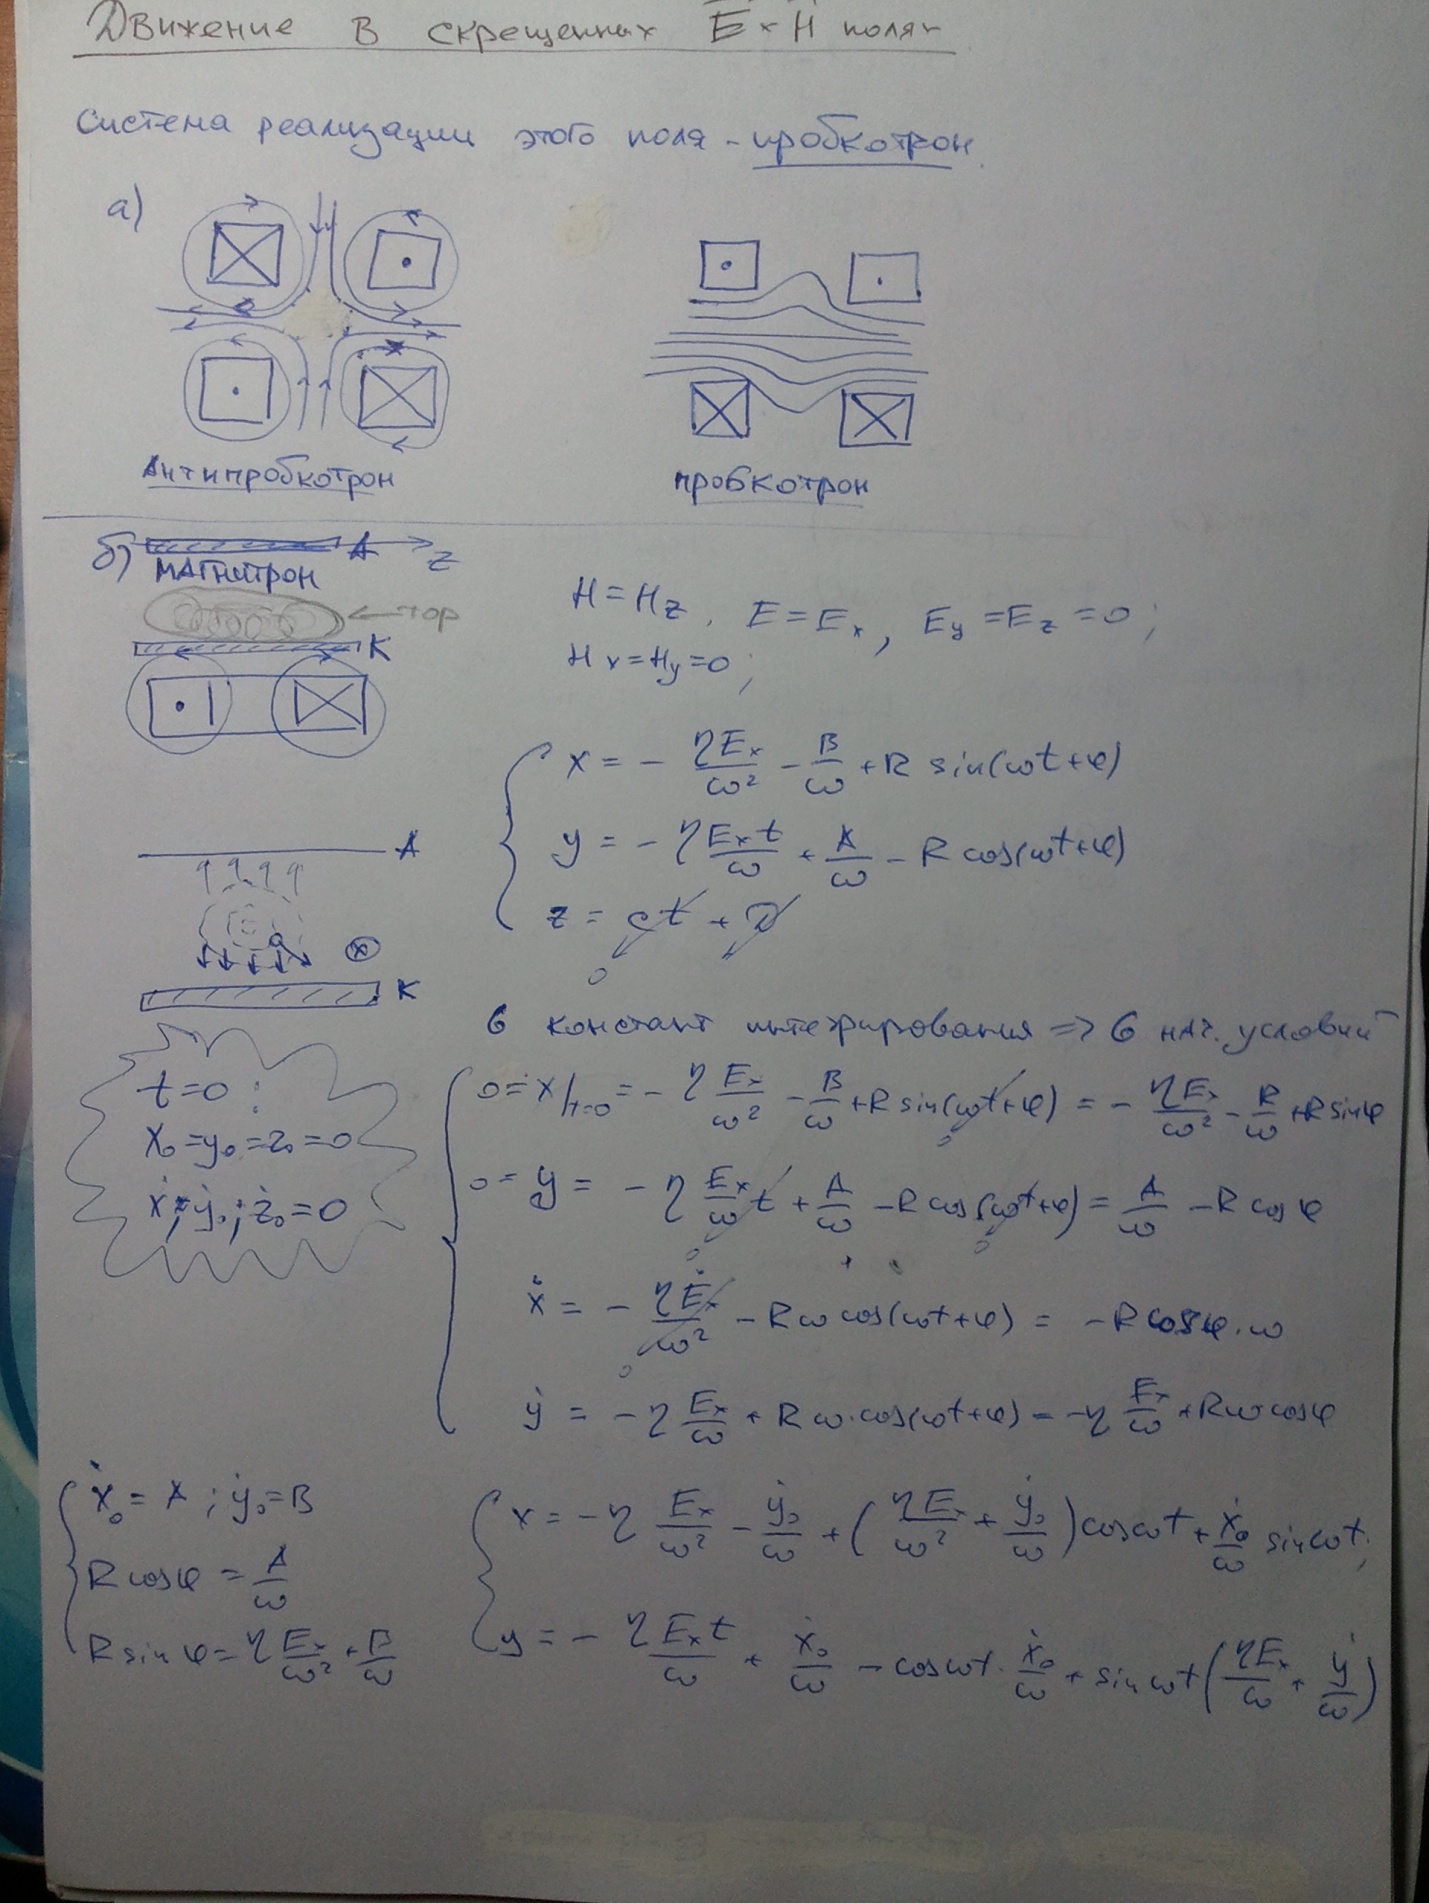 Движение в скрещенных E̅ × H̅ полях
система реализации этого поля - пробкотрон.
а)
Антипробкотрон
пробкотрон
б)
A
z
магнитрон
тор
K
H = Hz, E = Ex, Ey = Ez = 0;
Hx = Hy = 0;
x = - ηEx/ω² - B/ω + R sin(ωt+φ)
y = - ηExt/ω + A/ω - R cos(ωt+φ)
z = ct + D
0
A
K
6 констант интегрирования => 6 нач. условий
t = 0 :
x₀ = y₀ = z₀ = 0
ẋ; ẏ₀; ż₀ = 0
0 = x/t=0 = - ηEx/ω² - B/ω + R sin(ωt+φ) = - ηEx/ω² - B/ω + R sinφ
0 = y = - η Ex/ω t + A/ω - R cos(ωt+φ) = A/ω - R cosφ
ẋ = - ηEx/ω² - Rω cos(ωt+φ) = - R cosφ·ω
ẏ = - η Ex/ω + Rω·cos(ωt+φ) = - η Ex/ω + Rω cosφ
ẋ₀ = A ; ẏ₀ = B
R cosφ = A/ω
R sinφ = η Ex/ω² + B/ω
x = - η Ex/ω² - ẏ₀/ω + (ηEx/ω² + ẏ₀/ω) cosωt + ẋ₀/ω sinωt;
y = - ηExt/ω + ẋ₀/ω - cosωt · ẋ₀/ω + sinωt (ηEx/ω + ẏ/ω)